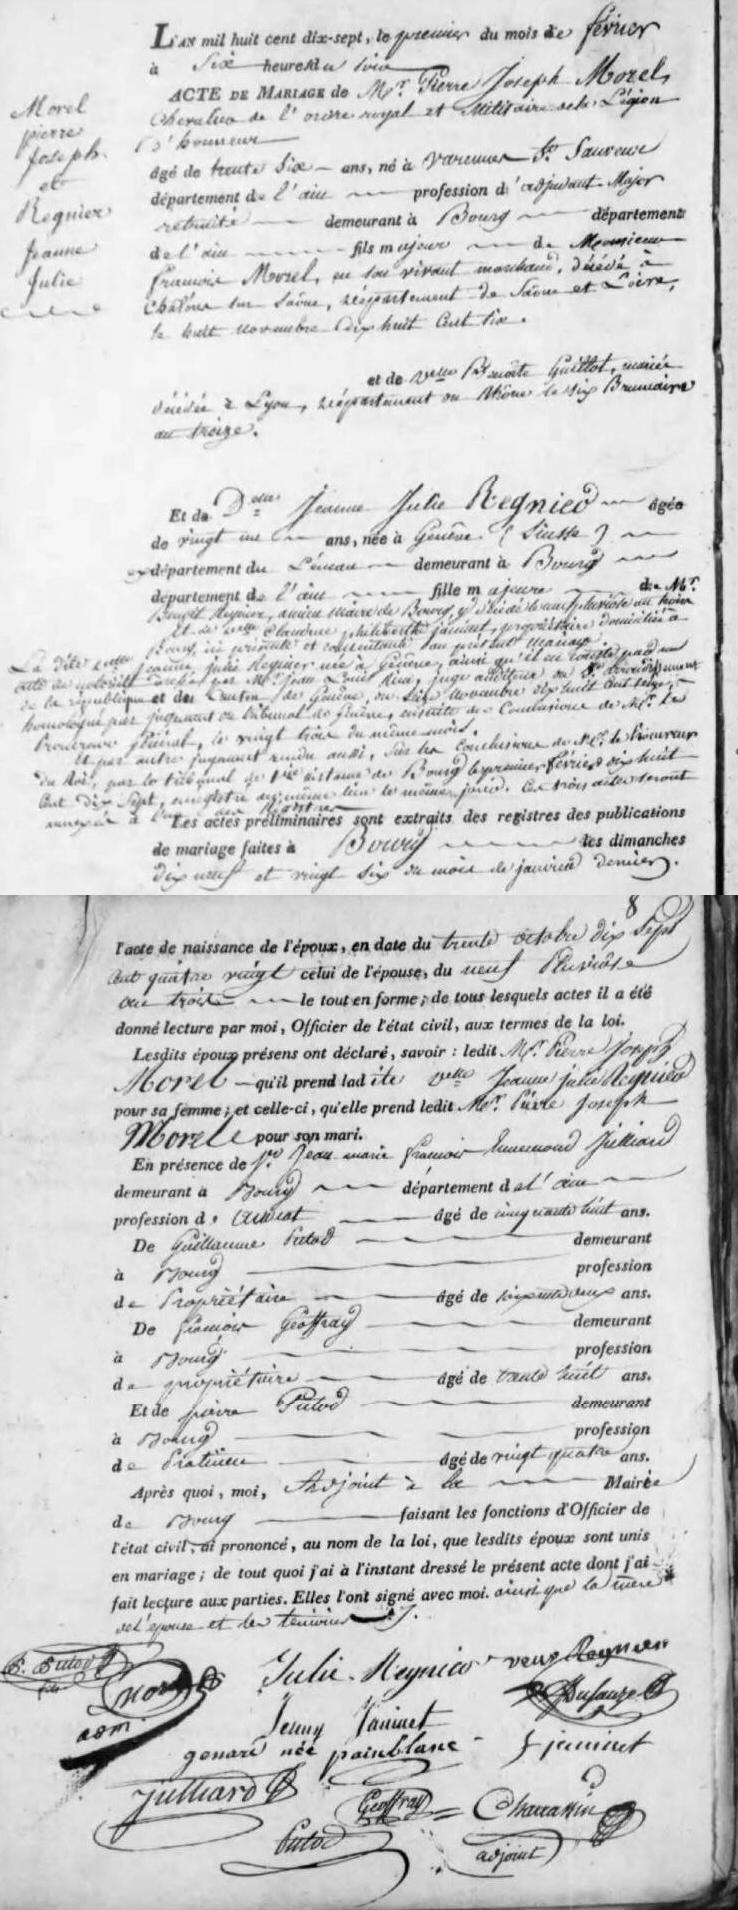 Morel
pierre
Joseph
et
Regnier
Jeanne
Julie
L'AN mil huit cent dix-sept, le premier du mois de février
à Six heures du soir
ACTE DE MARIAGE de Mr. Pierre Joseph Morel,
Chevalier de l'ordre royal et Militaire de la Légion
D'honneur
âgé de trente six ans, né à Varennes St. Sauveur
département de l'ain profession d'adjudant-Major
retraité demeurant à Bourg département
de l'ain fils majeur de Monsieur
françois Morel, en son vivant marchand, décédé à
Châlons sur Saône, département de Saône et Loire,
le huit novembre dix huit cent six.
et de Benoîte Guillot, mariés
décédée à Lyon, département du Rhône le six Brumaire
an treize.
Et de Delle Jeanne Julie Regnier âgée
de vingt un ans, née à Genève (Suisse)
département du Léman demeurant à Bourg
département de l'ain fille majeure de Mr.
Benoît Regnier, ancien Maire de Bourg, y décédé le
et de Claudine philiberte janinet, propriétaire domiciliée à
Bourg, ici présente et consentante au présent mariage.
La dite Jeanne julie Regnier née à Genève, ainsi qu'il en conste par un
acte de notoriété par Mr. Jean Louis juge
de la république et du Canton de Genève, du novembre dix huit cent seize,
homologué par jugement du tribunal de Genève, ensuite des Conclusions de Mr. le
Procureur général, le vingt trois du même mois.
et par autre jugement rendu aussi, sur les conclusions de Mr. le Procureur
du Roi, par le tribunal de 1ère instance de Bourg le premier février dix huit
cent dix Sept, enregistré au même lieu le même jour. Ces trois actes seront
annexés à l'un des Registres
Les actes préliminaires sont extraits des registres des publications
de mariage faites à Bourg les dimanches
dix neuf et vingt six du mois de janvier dernier.
8
l'acte de naissance de l'époux, en date du trente octobre dix Sept
cent quatre vingt celui de l'épouse, du neuf Pluviôse
an trois le tout en forme; de tous lesquels actes il a été
donné lecture par moi, Officier de l'état civil, aux termes de la loi.
Lesdits époux présens ont déclaré, savoir: ledit Mr. Pierre Joseph
Morel qu'il prend ladite Delle Jeanne julie Regnier
pour sa femme; et celle-ci, qu'elle prend ledit Mr. Pierre Joseph
Morel pour son mari.
En présence de Sr. Jean marie françois Julliard
demeurant à Bourg département de l'ain
profession d'avocat âgé de cinquante huit ans.
De Guillaume Putod demeurant
à Bourg profession
de Propriétaire âgé de ans.
De françois Geoffray demeurant
à Bourg profession
de propriétaire âgé de trente huit ans.
Et de pierre Putod demeurant
à Bourg profession
de Praticien âgé de vingt quatre ans.
Après quoi, moi, Adjoint à la Mairie
de Bourg faisant les fonctions d'Officier de
l'état civil, ai prononcé, au nom de la loi, que lesdits époux sont unis
en mariage; de tout quoi j'ai à l'instant dressé le présent acte dont j'ai
fait lecture aux parties. Elles l'ont signé avec moi. ainsi que la mère
de l'épouse et les témoins
P. Putod
Morel
Julie Regnier veuve Regnier
Dufauze
Jenny Janinet
née painblanc
janinet
Julliard
Geoffray
Charassin
Putod
adjoint